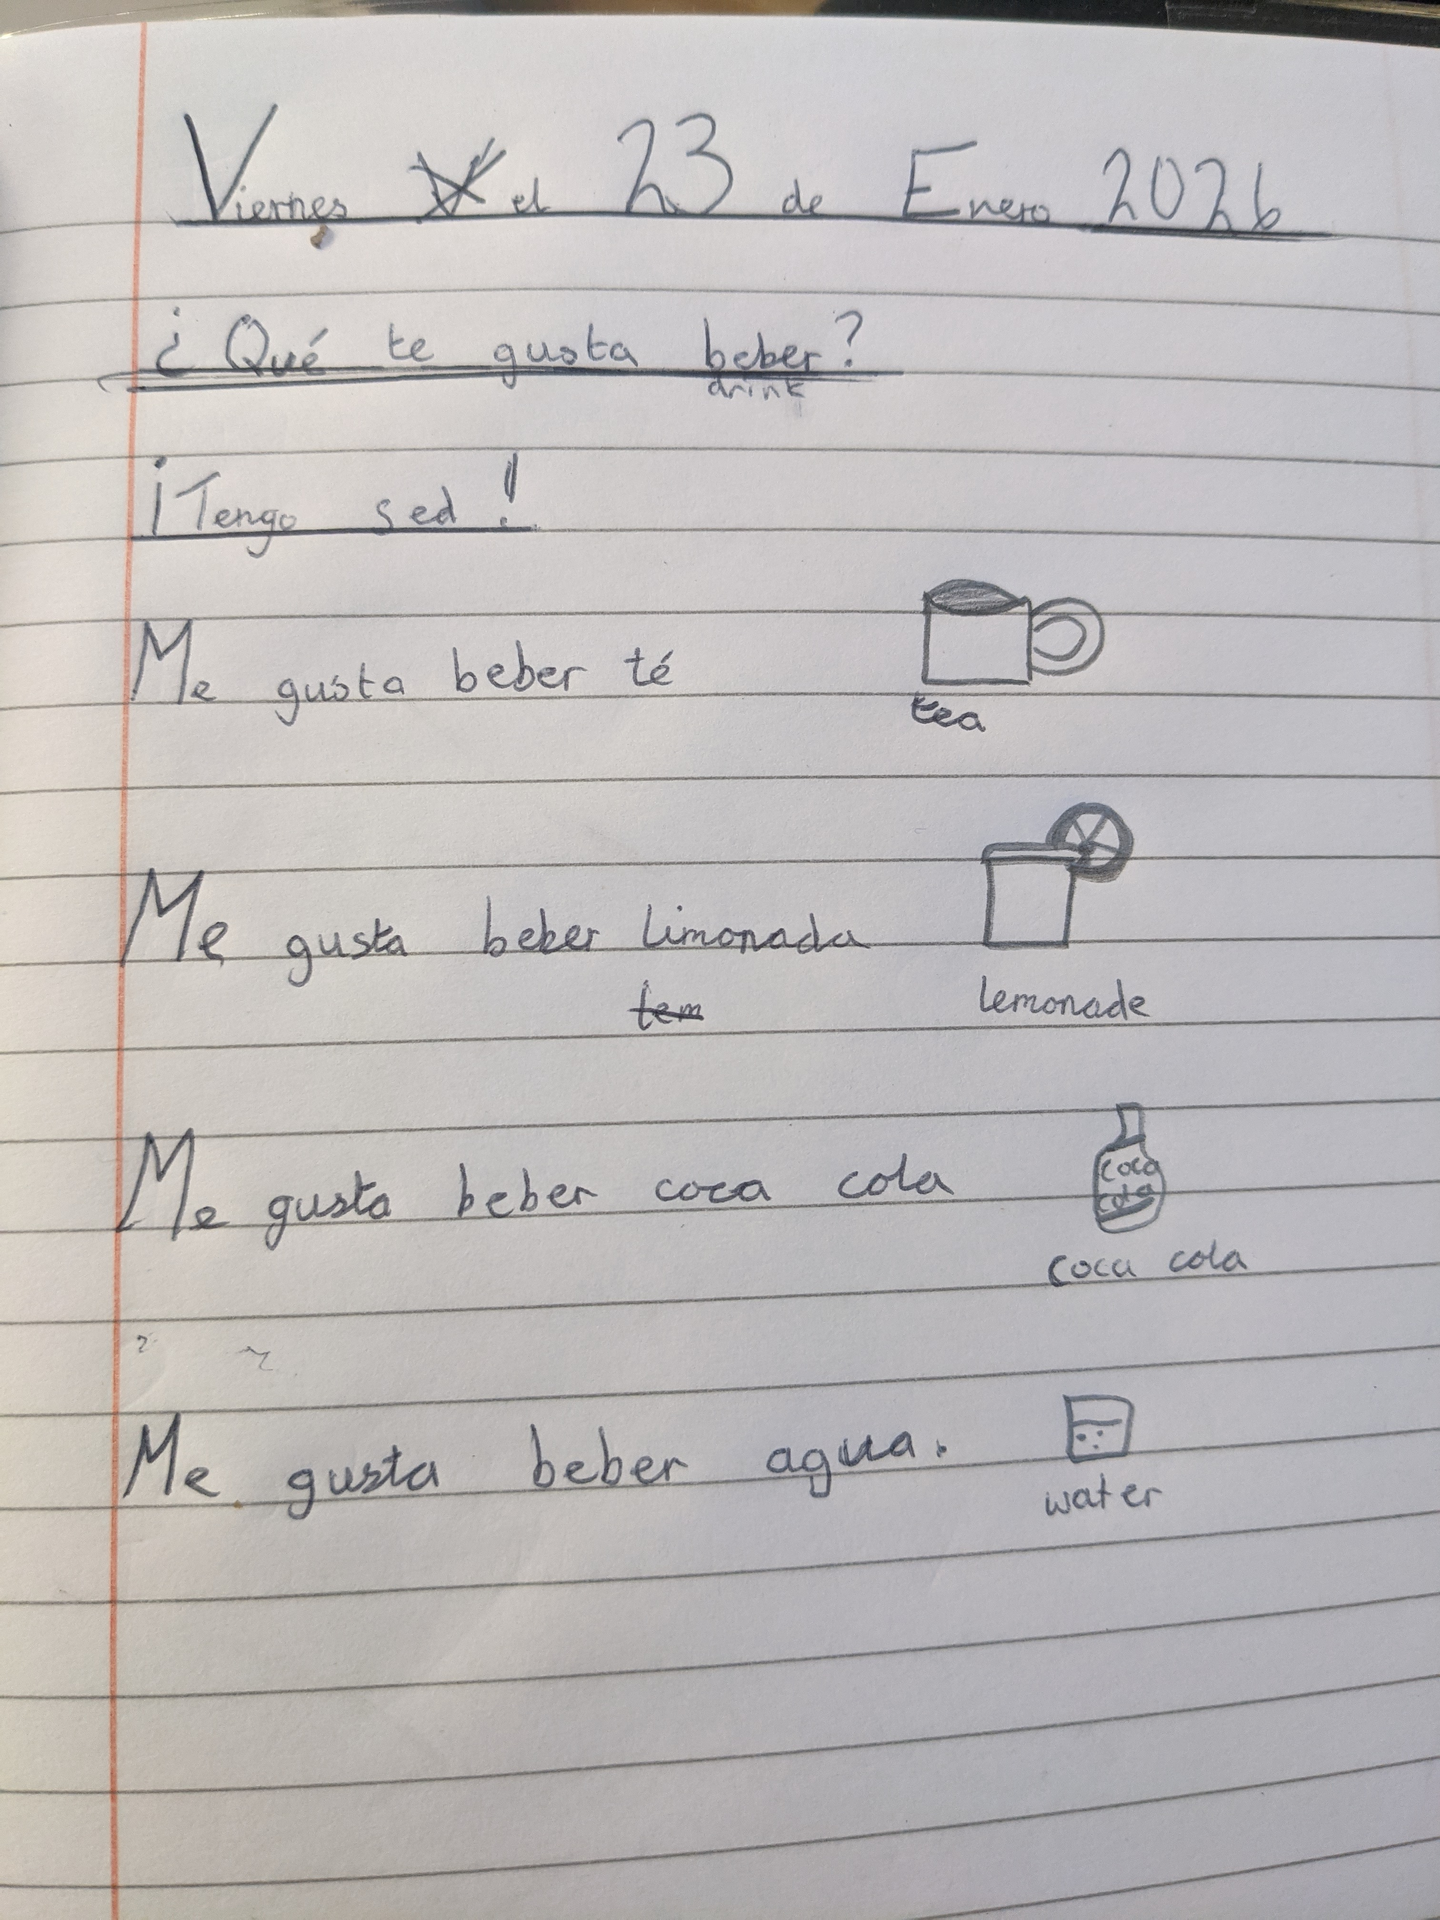 Viernes el 23 de Enero 2026
¿Qué te gusta beber?
drink
¡Tengo sed!
Me gusta beber té
tea
Me gusta beber limonada
lem
lemonade
Me gusta beber coca cola
coca
cola
coca cola
Me gusta beber agua.
water